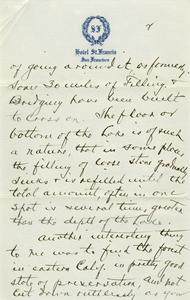 SF
Hotel St. Francis
San Francisco
of going around it as formerly,
Some 30 miles of Filling &
Bridging have been built
to cross on. The floor or
bottom of the Lake is of such
a nature, that in some places
the filling of loose stone gradually
sucks & is refilled until the
total amount put in one
spot is several times greater
than the depth of the Lake.
Another interesting thing
to me was to find the forest
in eastern Calif. in pretty good
state of preservation, and not
cut down entirely, as you